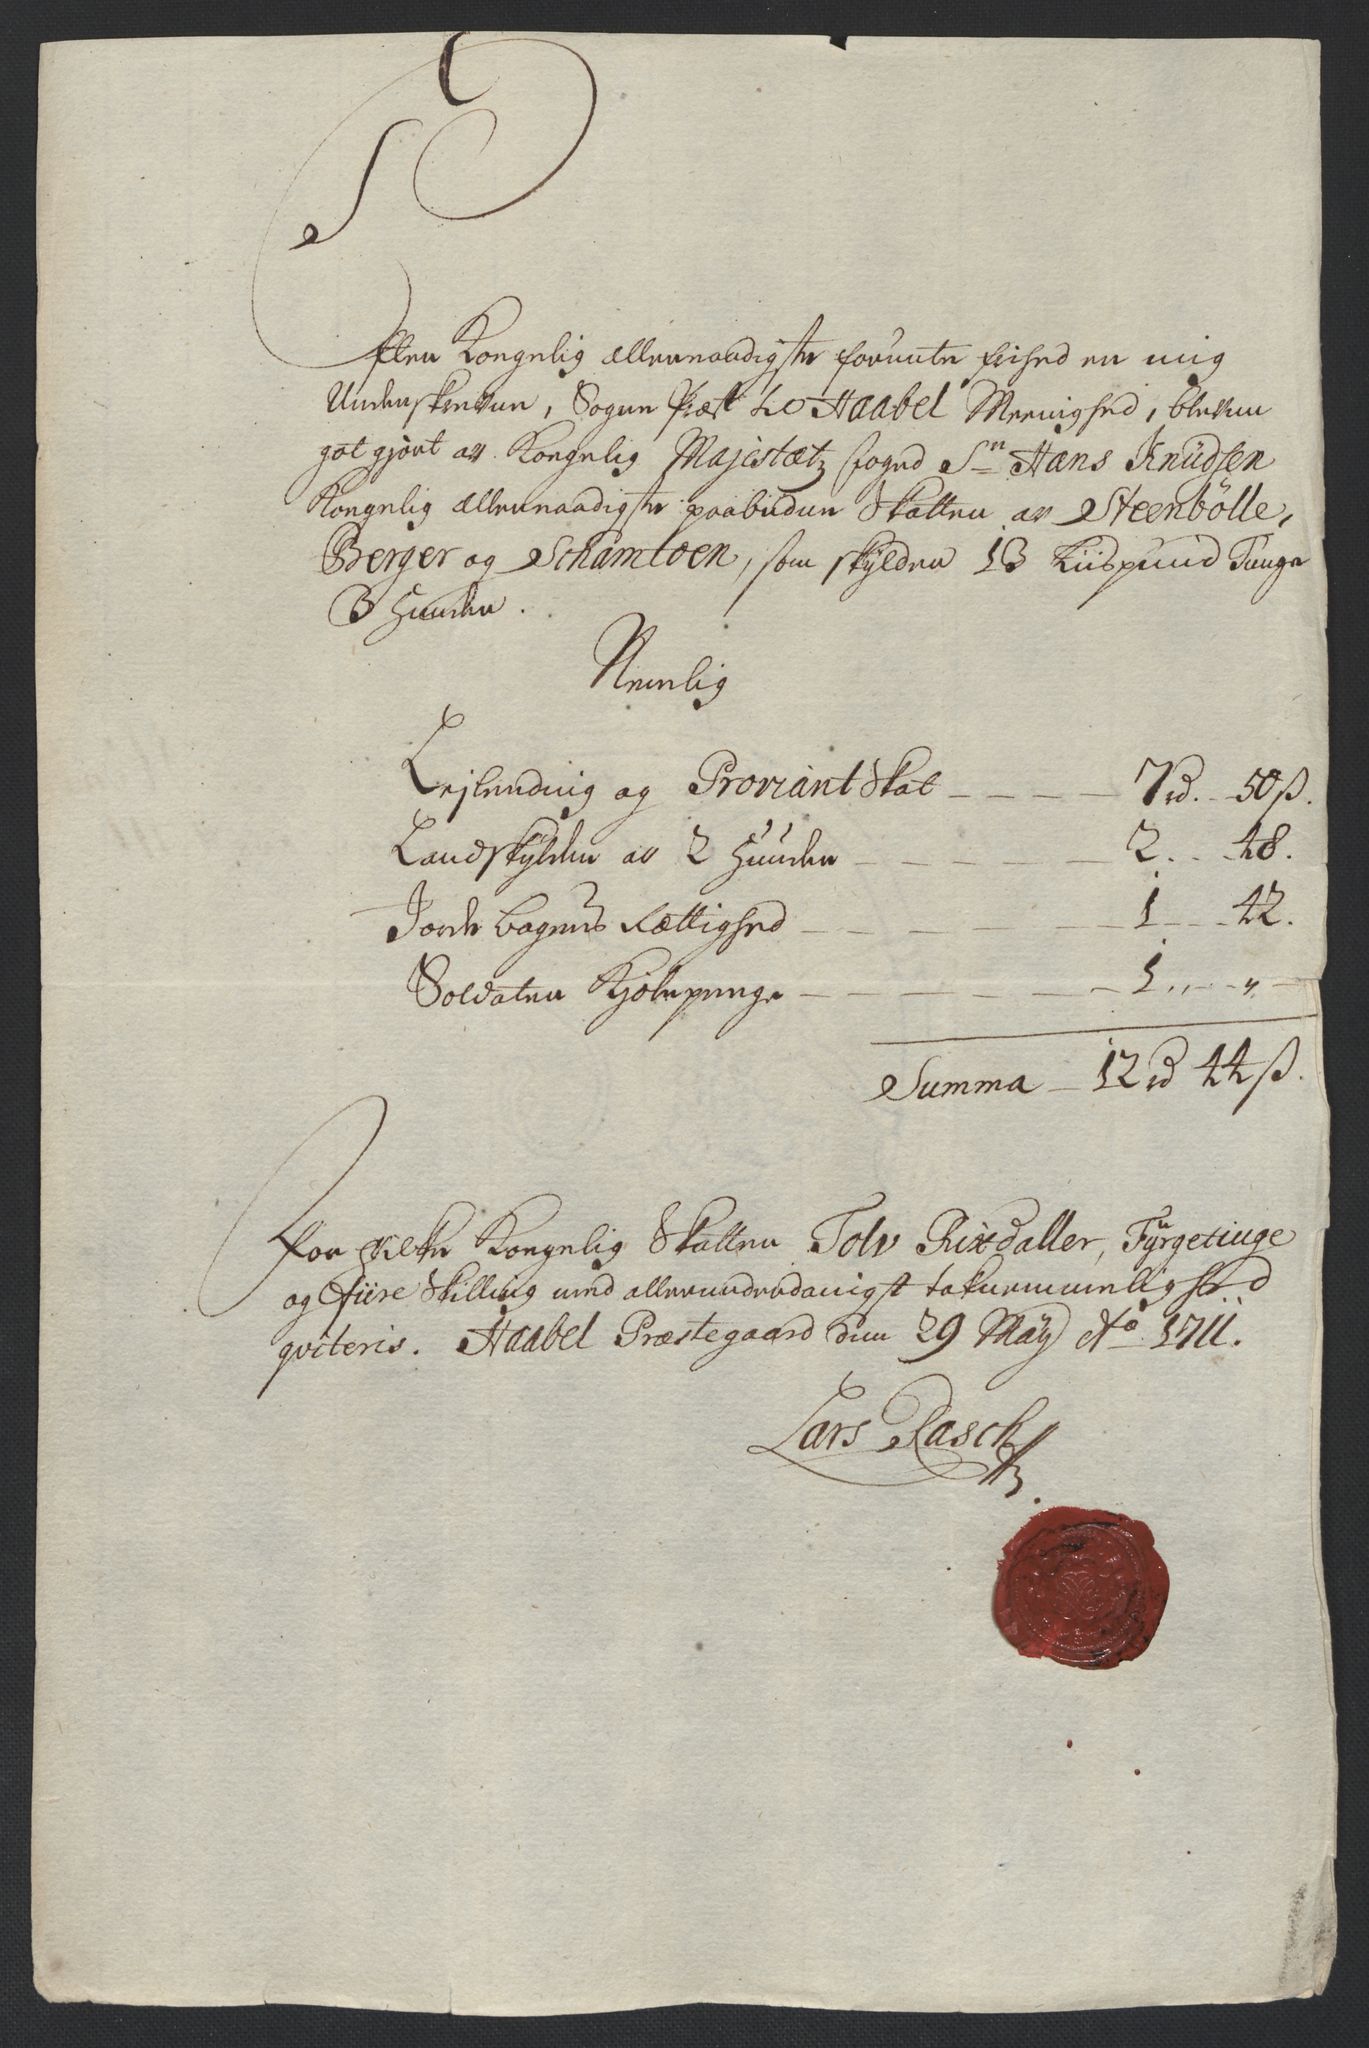 Efter Kongelig allernaadigste forunte frihed er mig
Underskrevne, Sogne Præst til Haabel Meenighed, bleven
got gjort av Kongelig Majestætz foged Sr Hans Knudsen
Kongelig allernaadigste paabudne Skatter av Steenbölle,
Berger og Schamloen, som skylder 13 Liispund Tunge
3 Huuder.
Nemlig
Lejlending og Proviant Skat 7 rd. 50 ß.
Landskylden av 2 Huuder 2. 48.
Jorde bogens Rættighed 1 42.
Soldater Kjole penge 1 „
Summa 12 rd 44 ß.
for hvilke Kongelig Skatter Tolv Rixdaller, Fyrgetiuge
og fiire Skilling med allerunderdanigst taknemmelighed
qviteris. Haabel Præstegaard den 29 Maÿ Ao 1711.
Lars Pasch